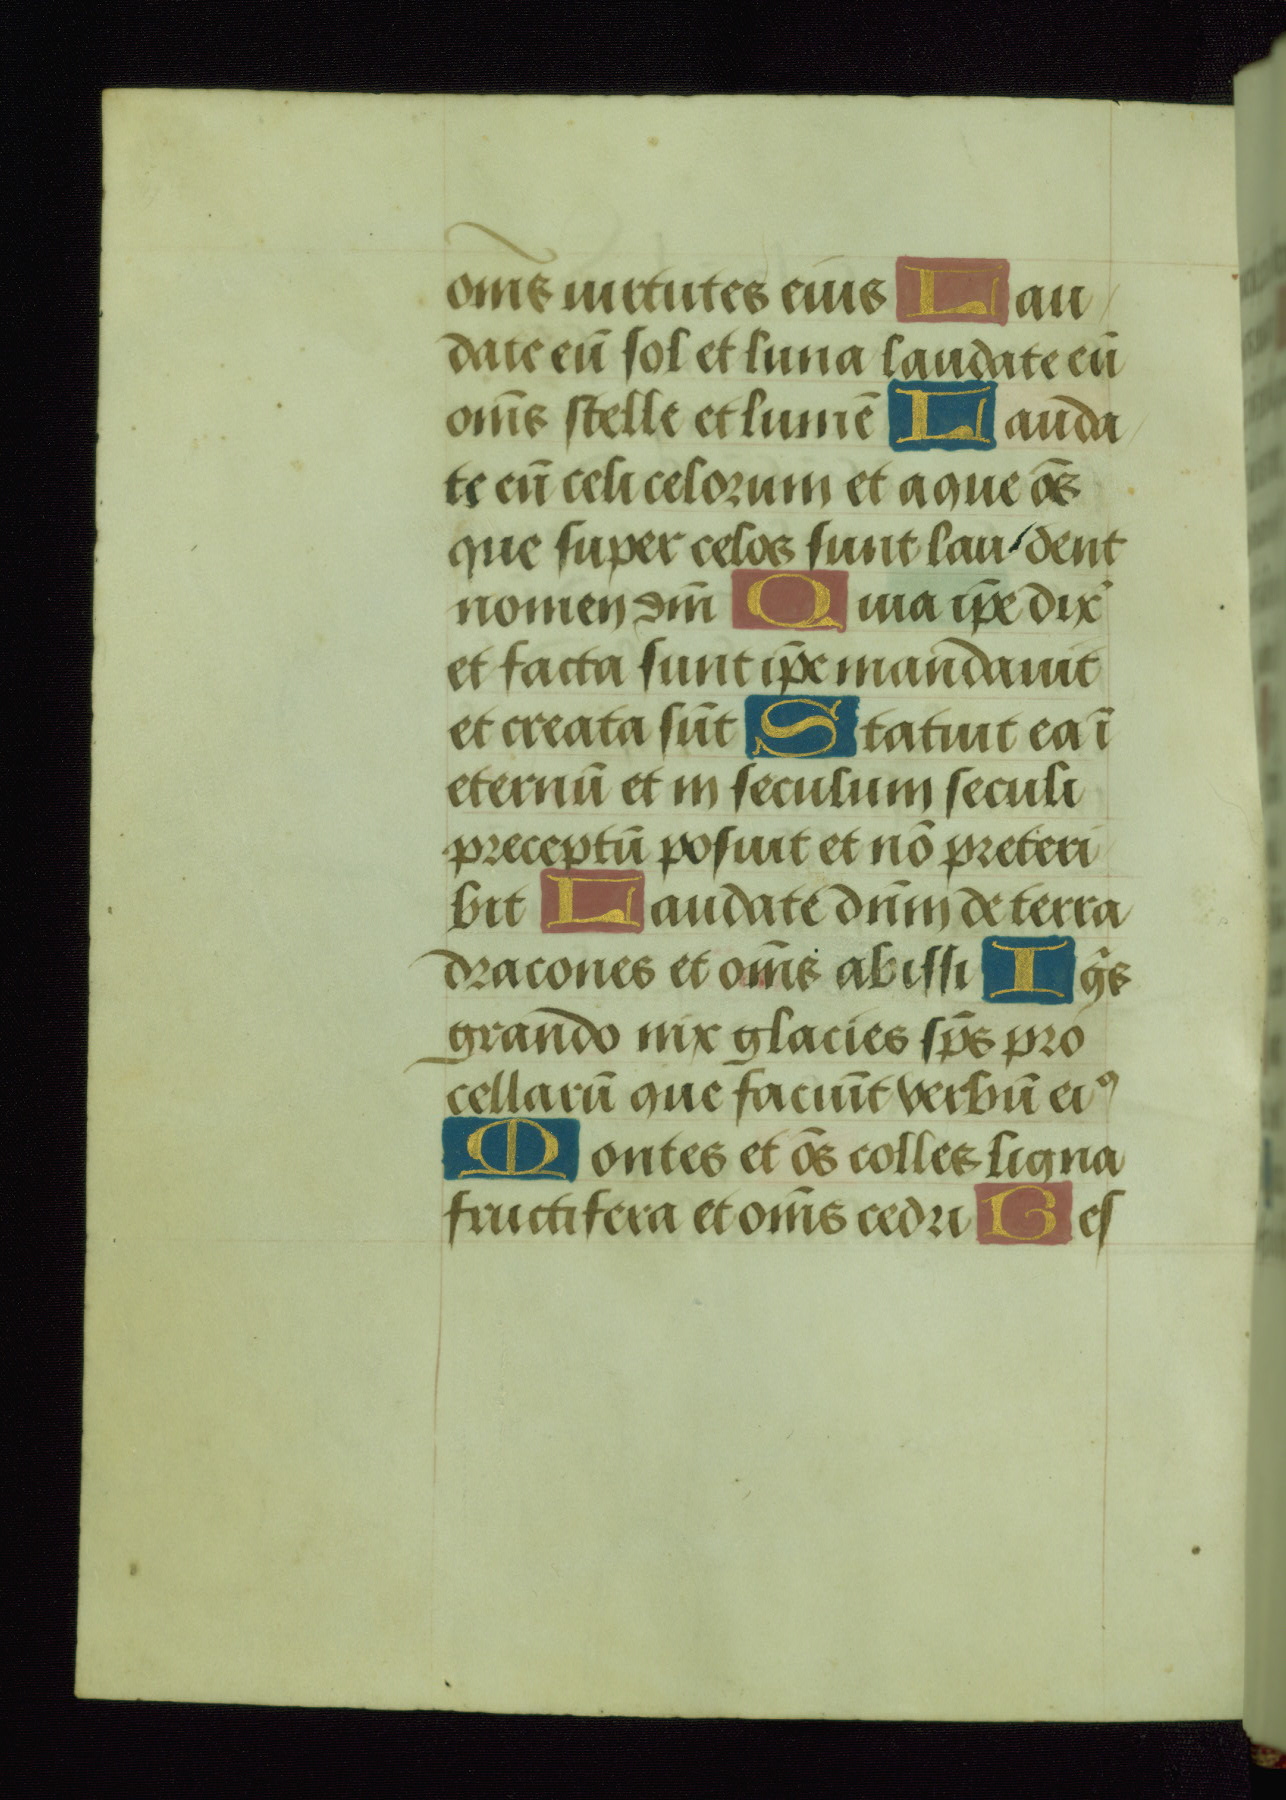 om̄s uirtutes eius Lau
date eū sol et luna laudate eū
om̄s stelle et lumē Lauda
te eū celi celorum et aque ōs
que super celos sunt lau dent
nomen dn̄i Quia ip̄e dix
et facta sunt ip̄e mandauit
et creata sūt Statuit ea ī
eternū et in seculum seculi
preceptū posuit et nō preteri
bit Laudate dn̄m de terra
dracones et om̄s abissi Iḡs
grando nix glacies sp̄s pro
cellarū que faciūt verbū eiꝰ
Montes et ōs colles ligna
fructifera et om̄s cedri Bes